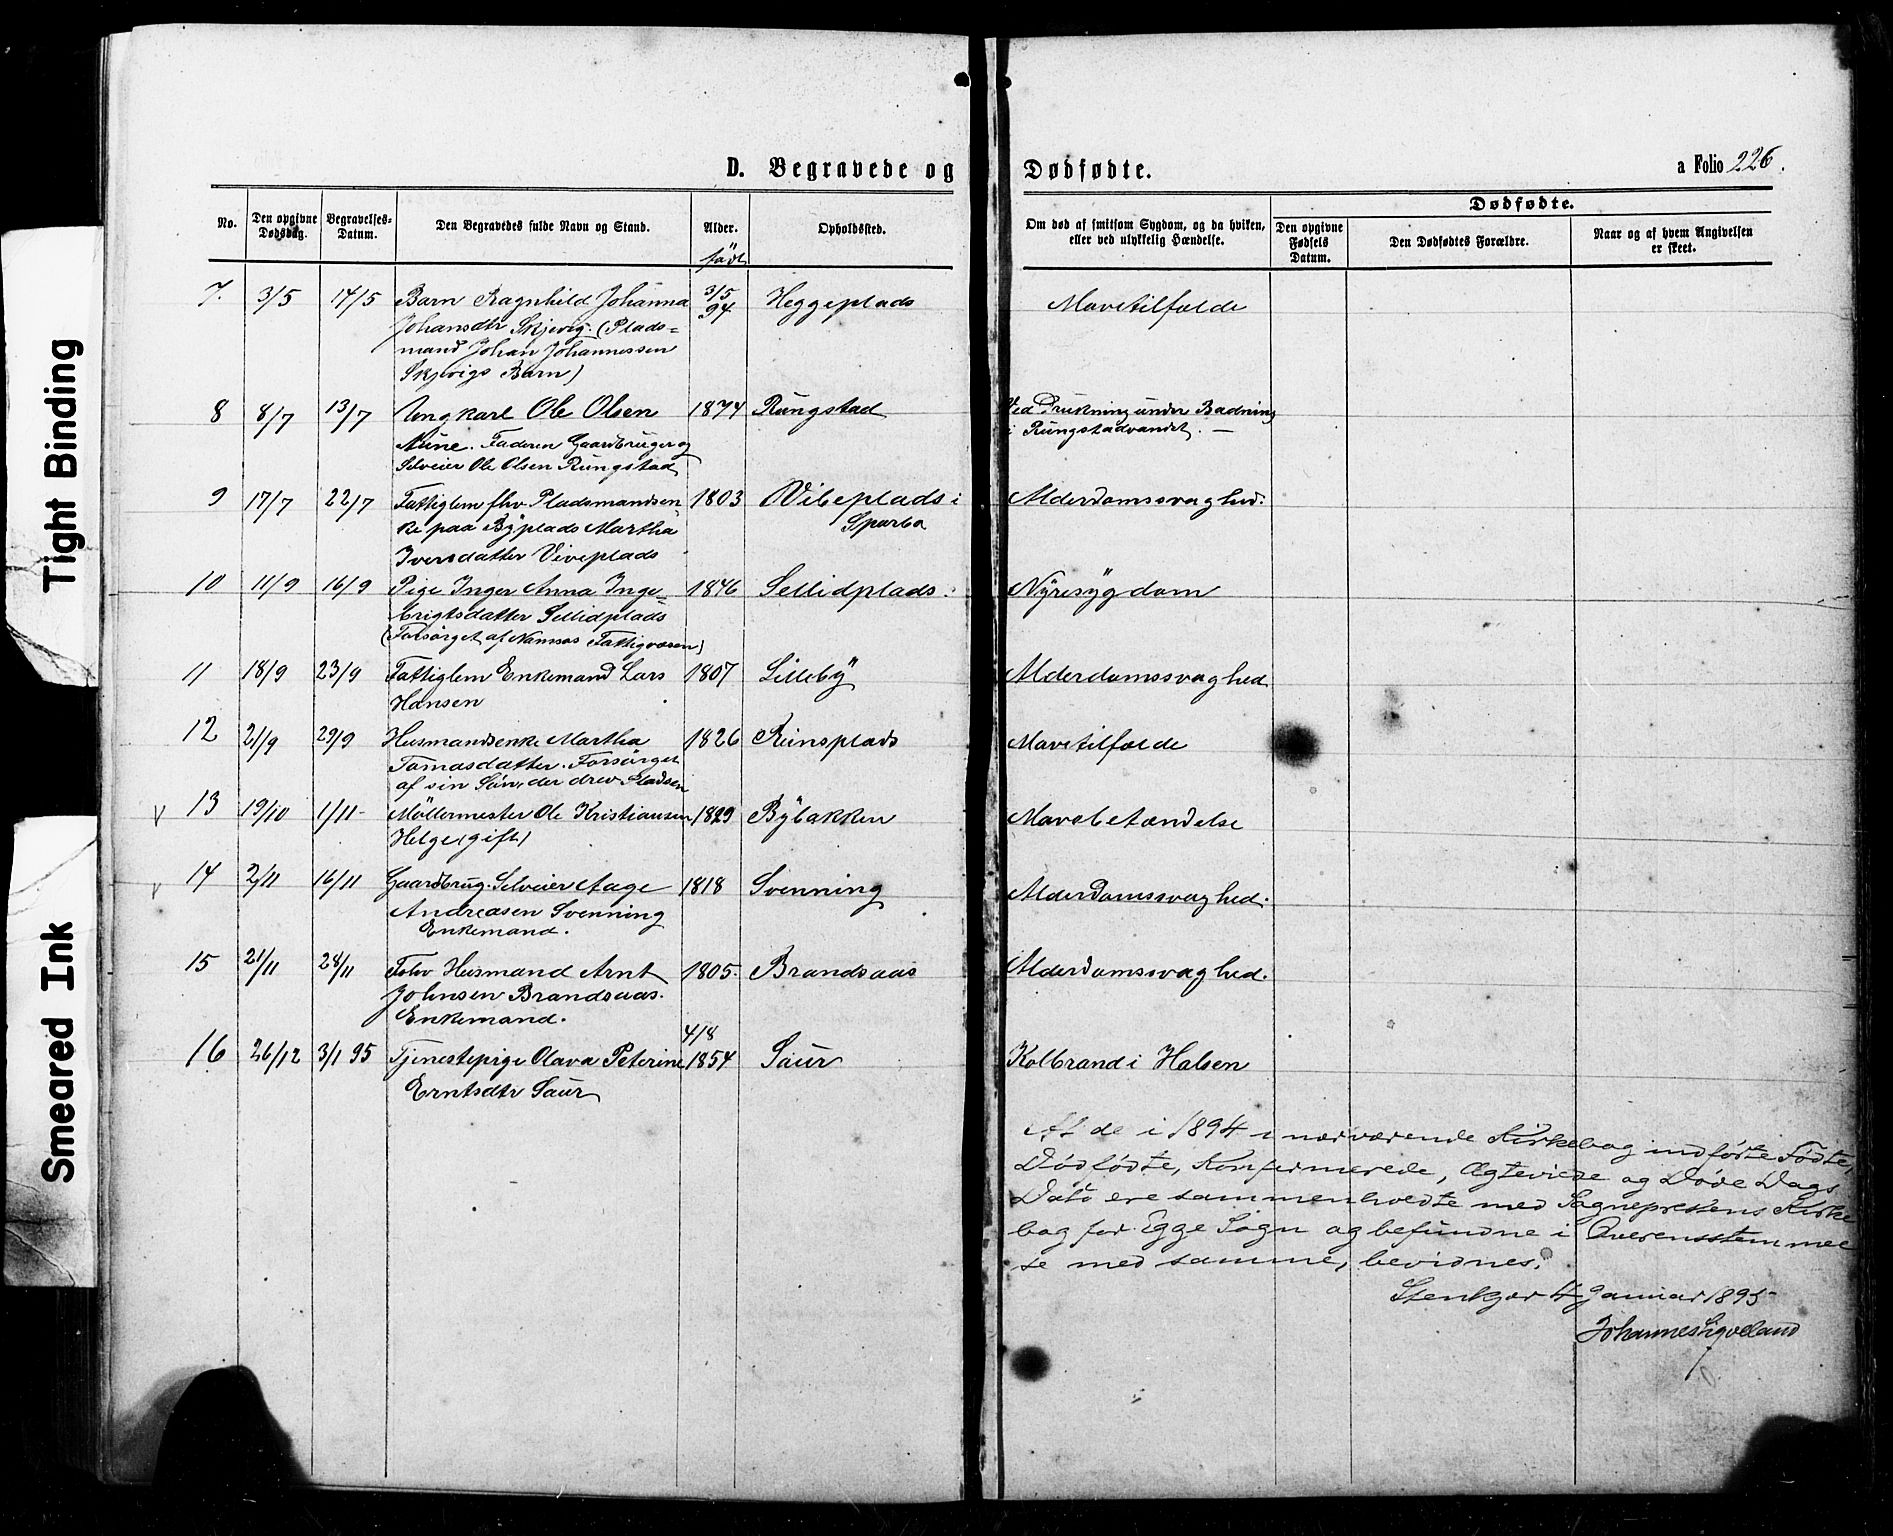 Tight Binding
Smeared Ink
D. Begravede og Dødfødte.
a Folio 226.
No.
Den opgivne Dødsdag.
Begravelses-Datum.
Den Begravedes fulde Navn og Stand.
Alder.
født
Opholdssted.
Om død af smitsom Sygdom, og da hvilken, eller ved ulykkelig Hændelse.
Dødfødte.
Den opgivne Fødsels Datum.
Den Dødfødtes Forældre.
Naar og af hvem Angivelsen er skeet.
7. 3/5 14/5 Barn Ragnhild Johanna 3/5 94 Heggeplads Mavetilfælde
Johansdtr Skjevig. (Plads=
mand Johan Johannessen
Skjevigs Barn)
8 8/7 13/7 Ungkarl Ole Olsen 1874 Rungstad Ved Drukning under Badning
Aune. Faderen Gaardbruger og i Rungstadvandet. —
Selveier Ole Olsen Rungstad
9 17/7 22/7 Fattiglem fhv Pladsmandsen 1803 Vibeplads i Alderdomssvaghed.
ke paa Byplads Martha Sparbo
Iversdatter Viveplads
10 11/9 16/9 Pige Inger Anna Inge 1846 Sellidplads. Nyresygdom
Erigtsdatter Sellidplads
(Forsørget af Namsos Fattigvæsen)
11 18/9 23/9 Fattiglem Enkemand Lars 1807 Lilleby Alderdomssvaghed
Hansen
12 21/9 29/9 Husmandsenke Martha 1826 Reinsplads Mavetilfælde
Tomasdatter. Forsørget
af sin Søn, der drev Pladsen
13 19/10 1/11 Møllermester Ole Kristiansen 1829 Bybakken Mavebetændelse
Helge (gift)
14 2/11 16/11 Gaardbrug. Selveier Aage 1818 Svenning Alderdomssvaghed.
Andreasen Svenning
Enkemand.
15 21/11 28/11 Fohv Husmand Arnt 1805. Brandsaas Alderdomssvaghed.
Johnsen Brandsaas.
Enkemand.
16 26/12 3/1 95 Tjenestepige Olava Peterine 4/8 1854 Saur Kolbrand i Halsen
Erntsdtr Saur
At de i 1894 i nærværende Kirkebog indførte Fødte,
Dødfødte, Konfirmerede, Ægteviede og Døde Dags
Dato ere sammenholdte med Sognepræstens Kirke
bog for Egge Sogn og befundne i Overensstemmel
se med samme, bevidnes.
Stenkjær 4 Januar 1895
Johannes Sigveland